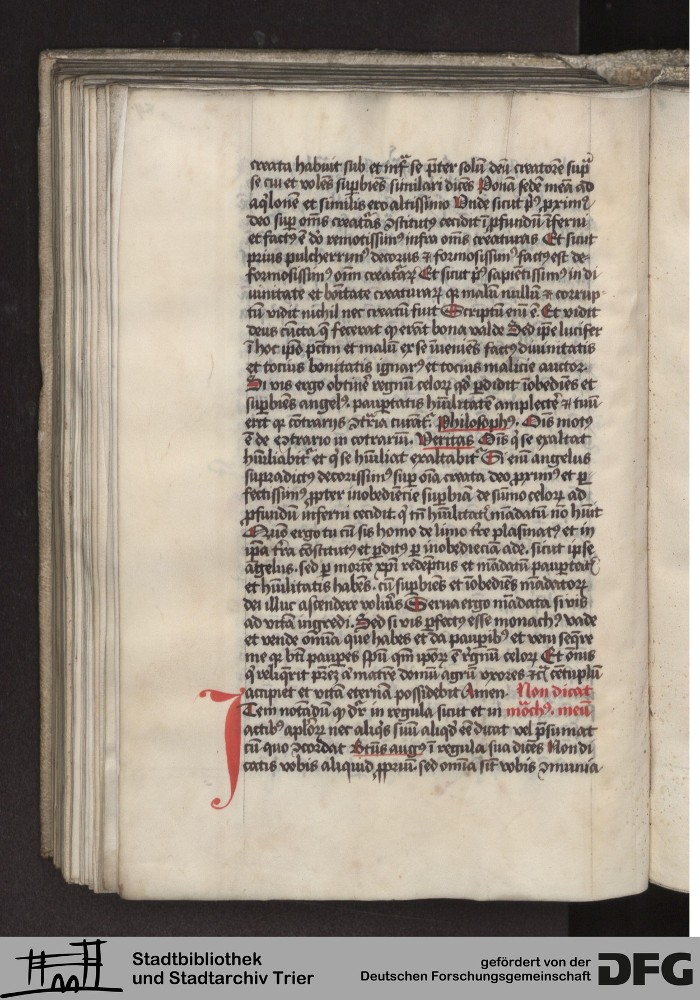 creata habuit sub et infͣ se p̄ter solū deū creatorē sup̱
se cui et volēs sup̱biens similari dicēs Ponā sedē meā ad
aq̓lonē et similis ero altissimo Unde sicut pͥꝰ ꝓximꝰ
deo sup̱ om̄s creatͣas ꝯstitutꝰ cecidit ī ꝓfundū īferni
et factꝰ ē do remotissimꝰ infra om̄s creaturas Et sicut
prius pulcherrimꝰ decorus ⁊ formosissimꝰ factꝰ est de-
formosissimꝰ oīm creatͣaꝝ Et sicut pͥꝰ sapientissimꝰ in di
uinitate et bōitate creaturaꝝ qꝫ malū nullū ⁊ corrup
tū vidit nichil nec creatū fuit Scriptū eni ē. Et vidit
deus cūcta q̄ fecerat qꝫ erāt bona valde Sed ip̄e lucifer
ī hoc ip̄o pctm̄ et malū ex se īueniēs factꝰ diuinitatis
et tocius bonitatis ignarꝰ et tocius malicie auctor.
Si vis ergo obtinē regnū celoꝝ qd̓ p̱didit īobediēs et
sup̱biens angelꝰ. paup̱tatis hūilitatē amplectē ⁊ tuū
erit qꝫ cōtrarijs ꝯtͣria curāt̄. Philosophꝰ. Oīs motꝰ
ē de ꝯtrario in cotrariū. Veritas Oīs q̓ se exaltat
hūiliabit̄ et q̓ se hūiliat exaltabit̄ Si eni angelus
supradictꝰ decorissimꝰ sup̱ oīa creata deo ꝓximꝰ et p̱
fectissimꝰ ꝓpter inobediēcie sup̱biā de sūmo celoꝝ ad
ꝓfundū inferni cecidit. q̓ tn̄ hūilitatꝭ mādatū nō hūit
Quō ergo tu cū sis homo de limo tr̄e plasmatꝰ et in
ip̄a tr̄a cōstitutꝰ et p̱ditꝰ p̱ inobedieciā ade. sicut ipse
āgelus. sed p̱ mortē xp̄i redēptus et mādatū paup̱tatꝭ
et hūilitatis habēs. cū sup̱biēs et īobediēs mādatoꝝ
dei illuc ascendere volūis Serua ergo mādata si vis
ad vitā ingredi. Sed si vis p̱fectꝰ esse monachꝰ vade
et vende omīa que habes et da paup̱ibꝰ et veni seq̄re
me qꝫ bti paup̱es spū qm̄ ip̄oꝝ ē r̄gnū celoꝝ Et om̄is
q̓ reliq̄rit pr̄ez ⁊ matrē domū agrū vxores ⁊cͣ cētuplū
accipiet et vitā eternā possidebit Amen. Non dicat
Item notādū qꝫ dr̄ in regula sicut et in mōchꝰ. meū
actibꝰ ap̄loꝝ nec aliq̓s suū aliqd̓ ēē dicat vel p̄sumat
cū quo ꝯcordat Btūs augꝰ ī regula sua dicēs Non di
catis vobis aliquid ꝓpriū. sed omīa sīt vobis ꝯmunia
Stadtbibliothek
und Stadtarchiv Trier
gefördert von der
Deutschen Forschungsgemeinschaft
DFG